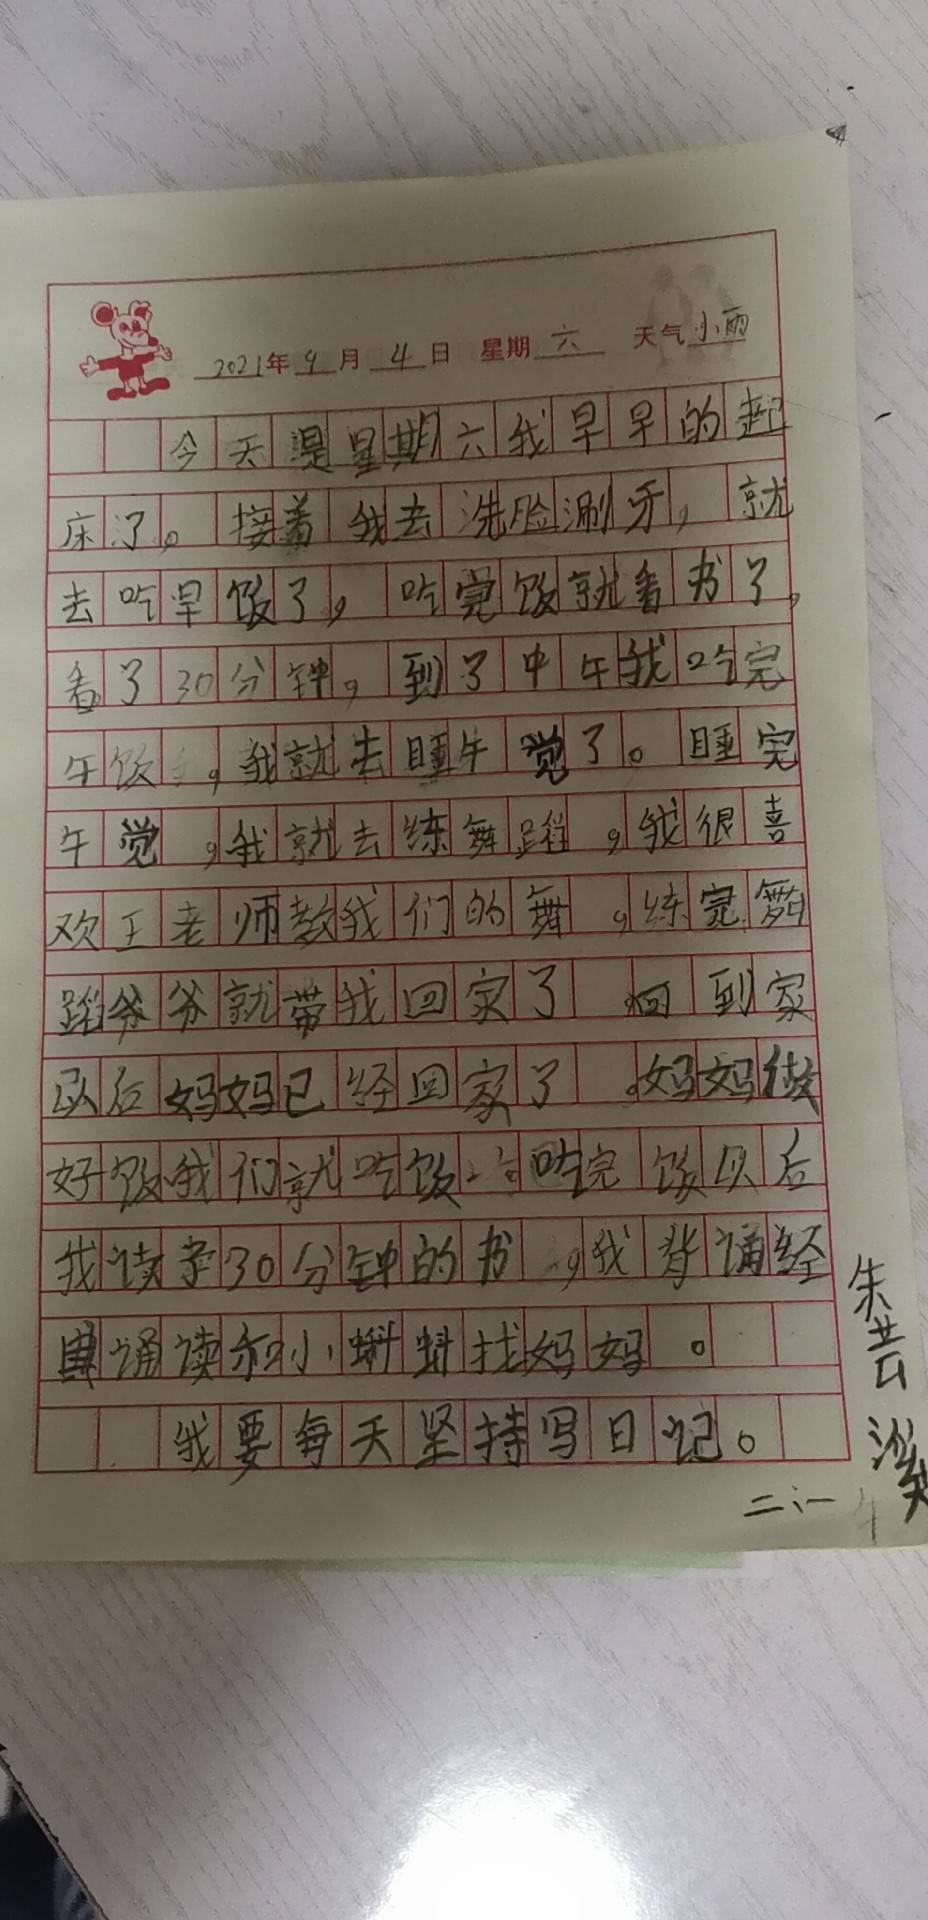 2021年9月4日 星期六 天气小雨
今天是星期六我早早的起
床了。接着我去洗脸涮牙,就
去吃早饭了,吃完饭就看书了,
看了30分钟,到了中午我吃完
午饭,我就去睡午觉了。睡完
午觉,我就去练舞蹈,我很喜
欢王老师教我们的舞,练完舞
蹈爷爷就带我回家了。回到家
以后妈妈已经回家了。妈妈做
好饭我们就吃饭吃完饭以后
我读了30分钟的书,我背诵经
典诵读和小蝌蚪找妈妈。
我要每天坚持写日记。
朱芸
二·一